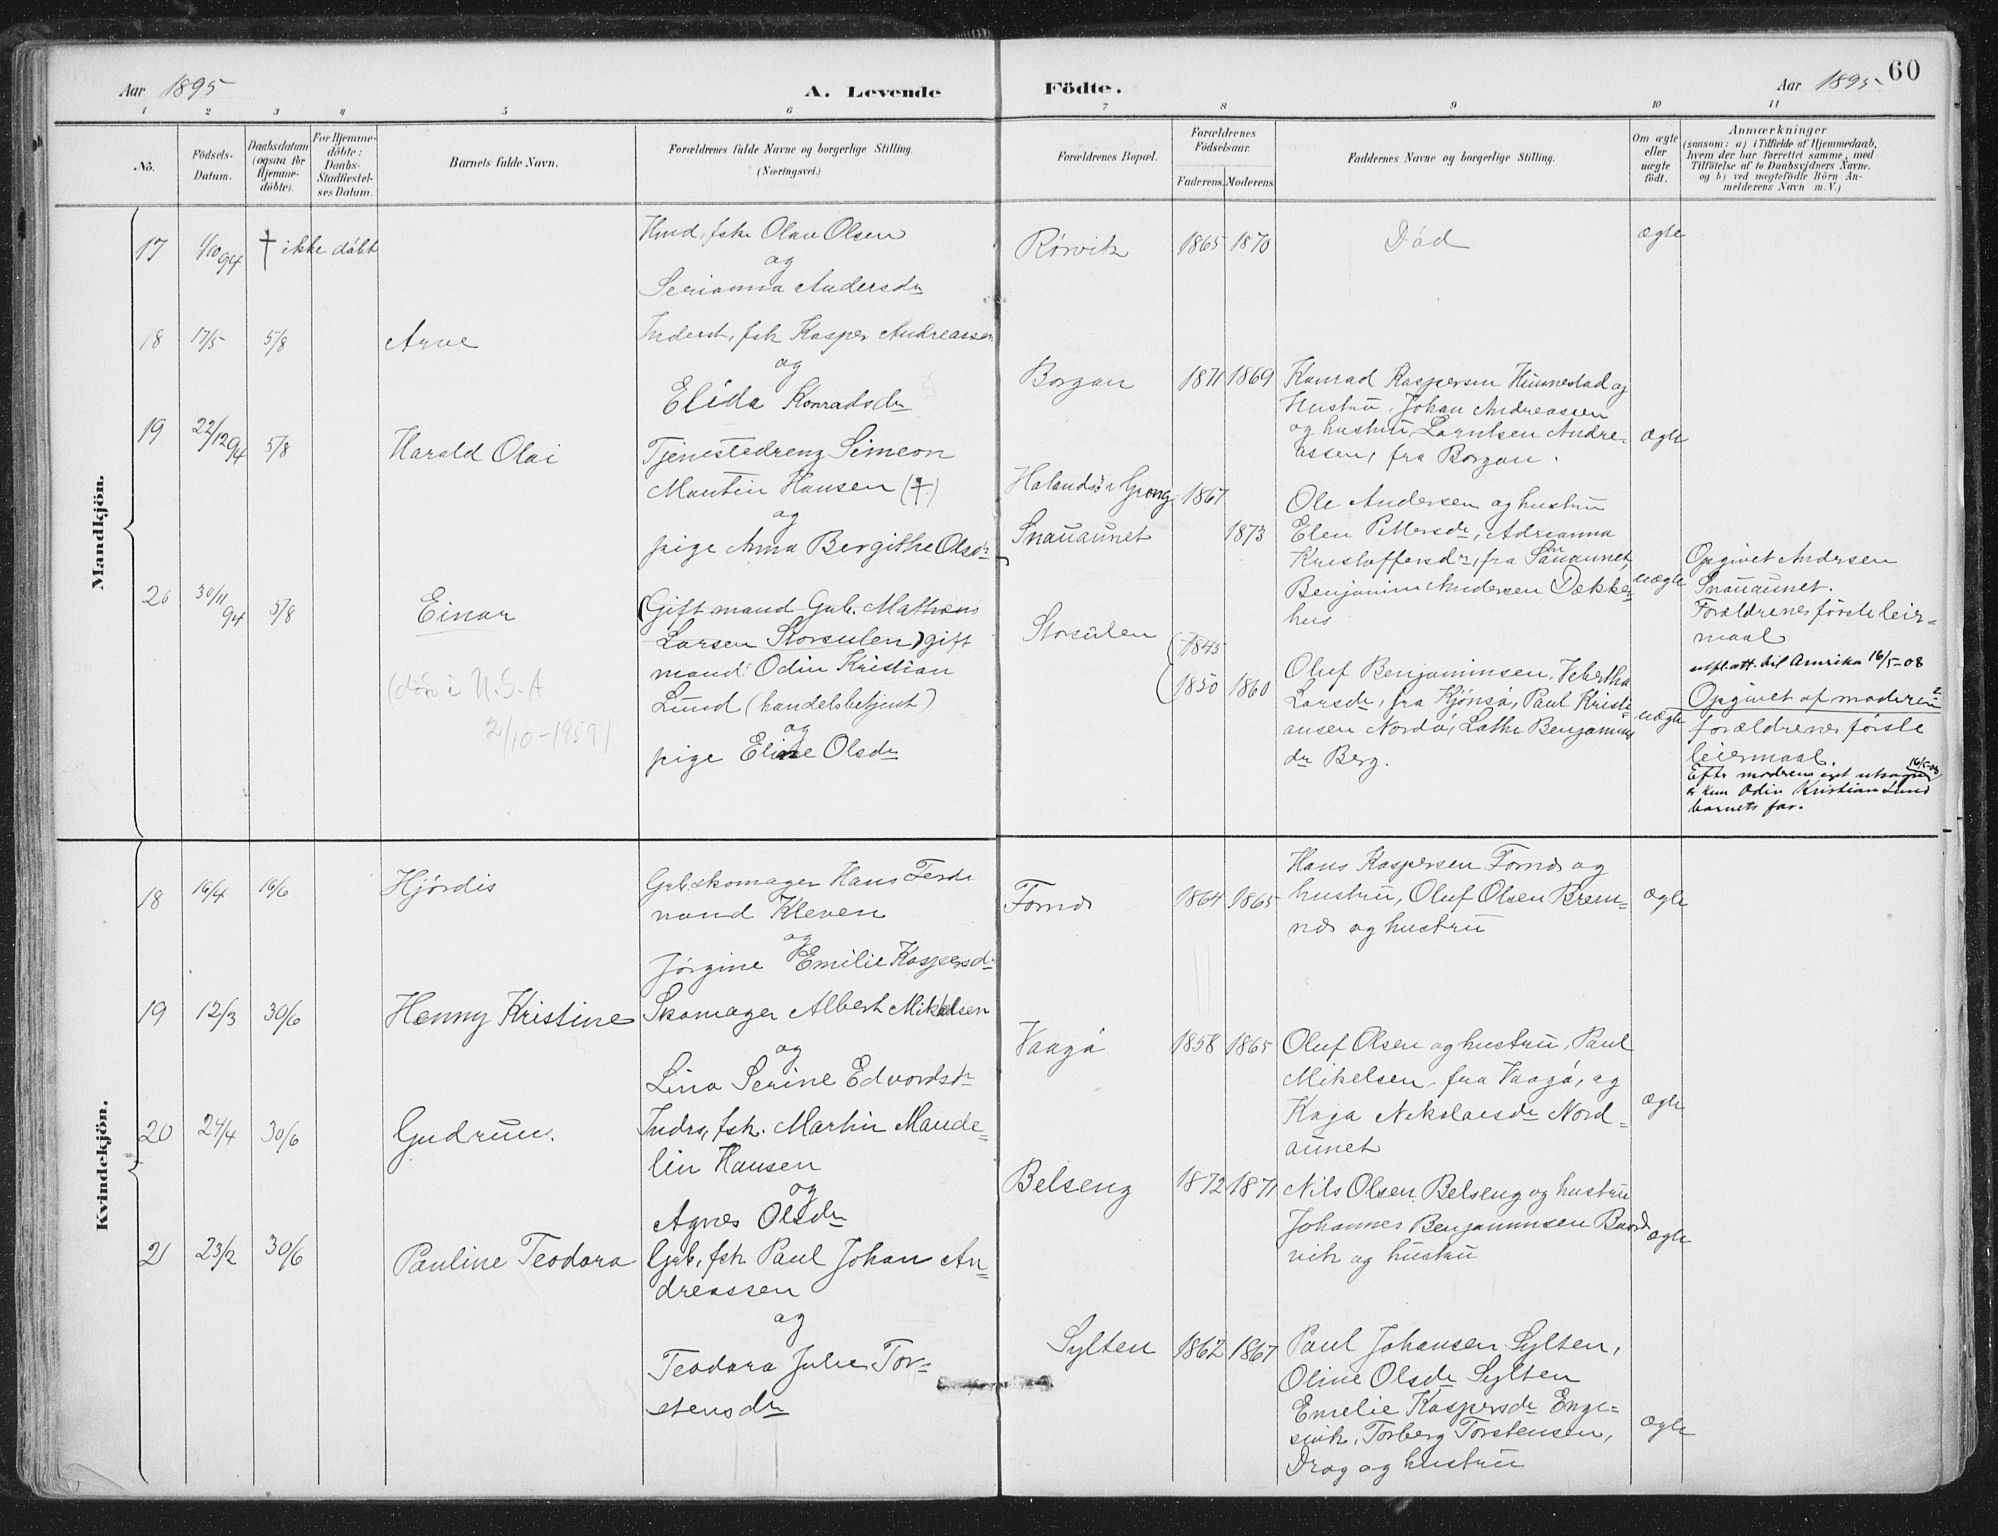 Aar 1895
A. Levende
Födte.
Aar 1895
60
1 2 3 4 5 6 7 8 9 10 11
No.
Födsels-Datum.
Daabsdatum (ogsaa for Hjemmedöbte).
For Hjemmedöbte: Daabs-Stadfæstelses Datum.
Barnets fulde Navn.
Forældrenes fulde Navne og borgerlige Stilling.
(Næringsvei.)
Forældrenes Bopæl.
Forældrenes Födselsaar.
Faderens. Moderens.
Faddernes Navne og borgerlige Stilling.
Om ægte eller uægte födt.
Anmærkninger
(saasom: a) i Tilfælde af Hjemmedaab,
hvem der har forrettet samme, med
Tilföielse af to Daabsvidners Navne,
og b) ved uægtefödte Börn An-
melderens Navn m. V.)
Mandkjön.
17 1/10 94 † ikke döbt
Hmd, fsk Olav Olsen
og
Serianna Andersdr
Rörvik 1865 1870 Död ægte
18 17/5 5/8 Arne
Inderst, fsk Kasper Andreassen
og
Elida Konradsdr
Borgan 1871 1869
Konrad Kaspersen Hunnestad og
Hustru, Johan Andreassen
og hustru, Andre-
assen, fra Borgan.
ægte
19 22/12 94 5/8 Harald Olai
Tjenestedreng Simeon
Martin Hansen (†)
og
pige Anna Bergithe Olsdr
Grong 1867
Snauaunet 1873
Ole Andersen og hustru
Elen Pettersdr, Adrianna
Kristoffersdr, fra Snauaunet,
Benjamin Andersen Dække-
hus
uægte
Opgivet Andersen
Snauaunet.
Forældrenes förste leier-
maal
20 30/11 94 5/8 Einar
(död i U.S.A
2/10-1959)
(Gift mand Gub. Mathias
Larsen Storsulen) gift
mand Odin Kristian
Lund (handelsbetjent)
og
pige Eline Olsdr
Storsulen (1845
(1850 1860
Oluf Benjaminsen,
Larsdr, fra Kjönsö, Paul Kristi-
ansen Nordö, Benjamins
dr Berg.
uægte
utfl.att. til Amrika 16/5-08
Opgivet af moderen
forældrenes förste
leiermaal.
16/5-08
Efter modrens eget utsagn
er kun Odin Kristian Lund
barnets far.
Kvindekjön.
18 16/4 16/6 Hjördis
Gub. skomager Hans Ferdi
nand Kleven
og
Jörgine Emilie Kaspersdr
Fornes 1864 1865
Hans Kaspersen Fornes og
hustru, Oluf Olsen Brem-
nes og hustru
ægte
19 12/3 30/6 Henny Kristine
Skomager Albert Mikalsen
og
Lina Serine Edvardsdr
Vaagö 1858 1865
Oluf Olsen og hustru, Paul
Mikelsen, fra Vaagö, og
Kaja Nikolaisdr Nord-
aunet
ægte
20 24/4 30/6 Gudrun.
Indrs, fsk. Martin Mande-
lin Hansen
og
Agnes Olsdr
Belseng 1872 1871
Nils Olsen Belseng og hustru
Johannes Benjaminsen Baard
vik og hustru
ægte
21 23/2 30/6 Pauline Teodora
Gub, fsk Paul Johan An-
dreassen
og
Teodora Julie Tor-
stensdr
Sylten 1862 1867
Paul Johansen Sylten,
Oline Olsdr Sylten
Emelie Kaspersdr Enge-
svik, Torberg Torstensen,
Drag og hustru
ægte